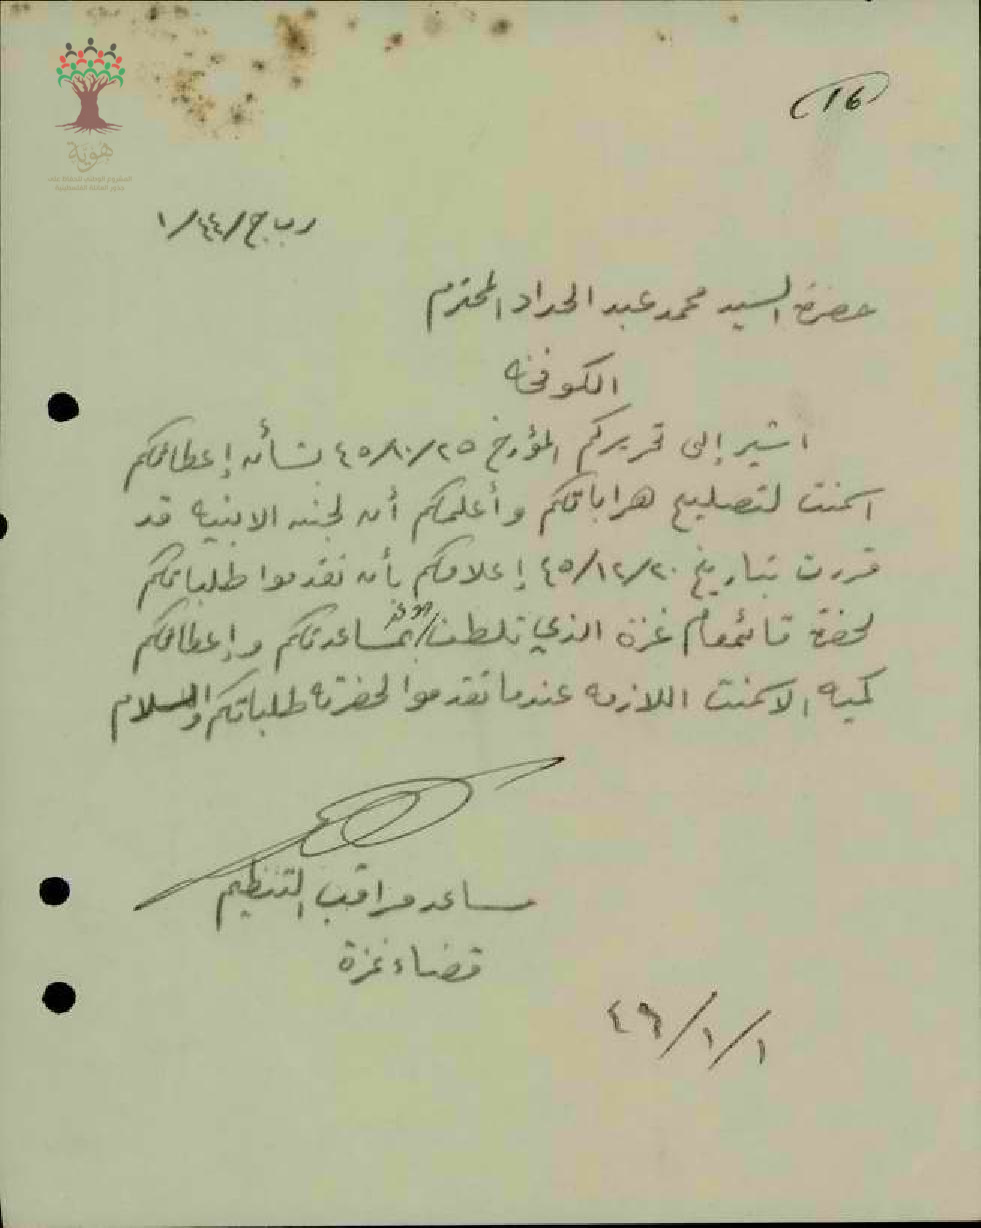 16
هوية
المشروع الوطني للحفاظ على
جذور العائلة الفلسطينية
ر ب ج/٤٤/١
حضرة السيد محمد عبد الحداد المحترم
الكوفخه
اشير إلى تحريركم المؤرخ ٤٥/١٠/٢٥ بشأن إعطائكم
اسمنت لتصليح هراباتكم وأعلمكم أن لجنه الابنيه قد
قررت بتاريخ ٤٥/١٢/٢٠ إعلامكم بأن تقدموا طلباتكم
لحضرة قائمقام غزة الذي تلطف بمساعدتكم وإعطائكم
كميه الاسمنت اللازمه عندما تقدموا لحضرته طلباتكم والسلام
مساعد مراقب التنظيم
قضاء غزة
٤٦/١/١